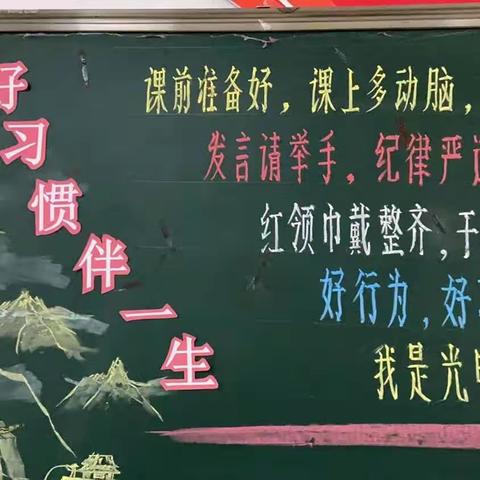 好习惯伴一生
课前准备好，课上多动脑，
发言请举手，纪律严
红领巾戴整齐，干
好行为，好
我是光